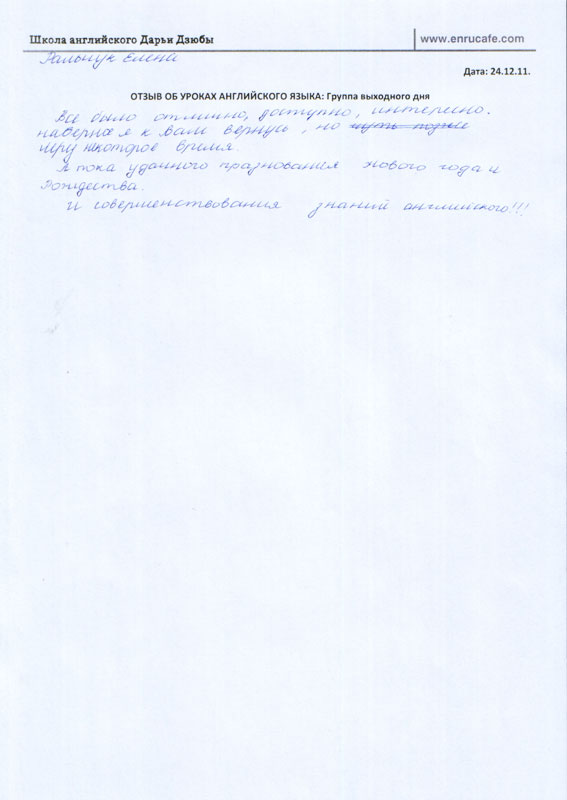 Школа английского Дарьи Дзюбы
www.enrucafe.com
Ральчук Елена
Дата: 24.12.11.
ОТЗЫВ ОБ УРОКАХ АНГЛИЙСКОГО ЯЗЫКА: Группа выходного дня
Все было отлично, доступно, интересно.
наверное я к вам вернусь, но чуть позже
некоторое время.
А пока удачного празнования нового года и
Рождества.
И совершенствования знаний английского!!!